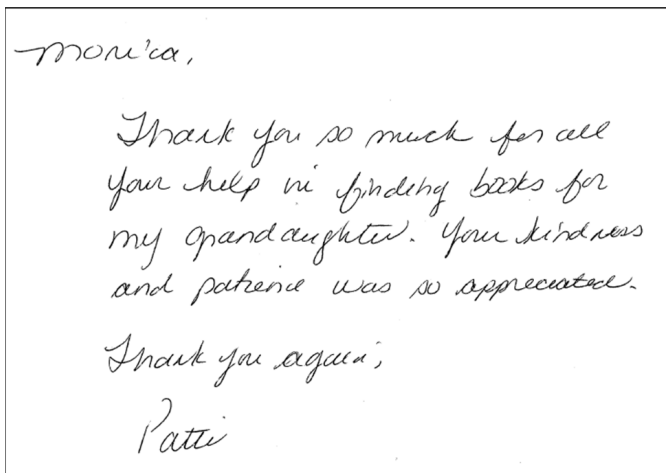 Monica,
Thank you so much for all
your help in finding books for
my granddaughter. Your kindness
and patience was so appreciated.
Thank you again,
Patti